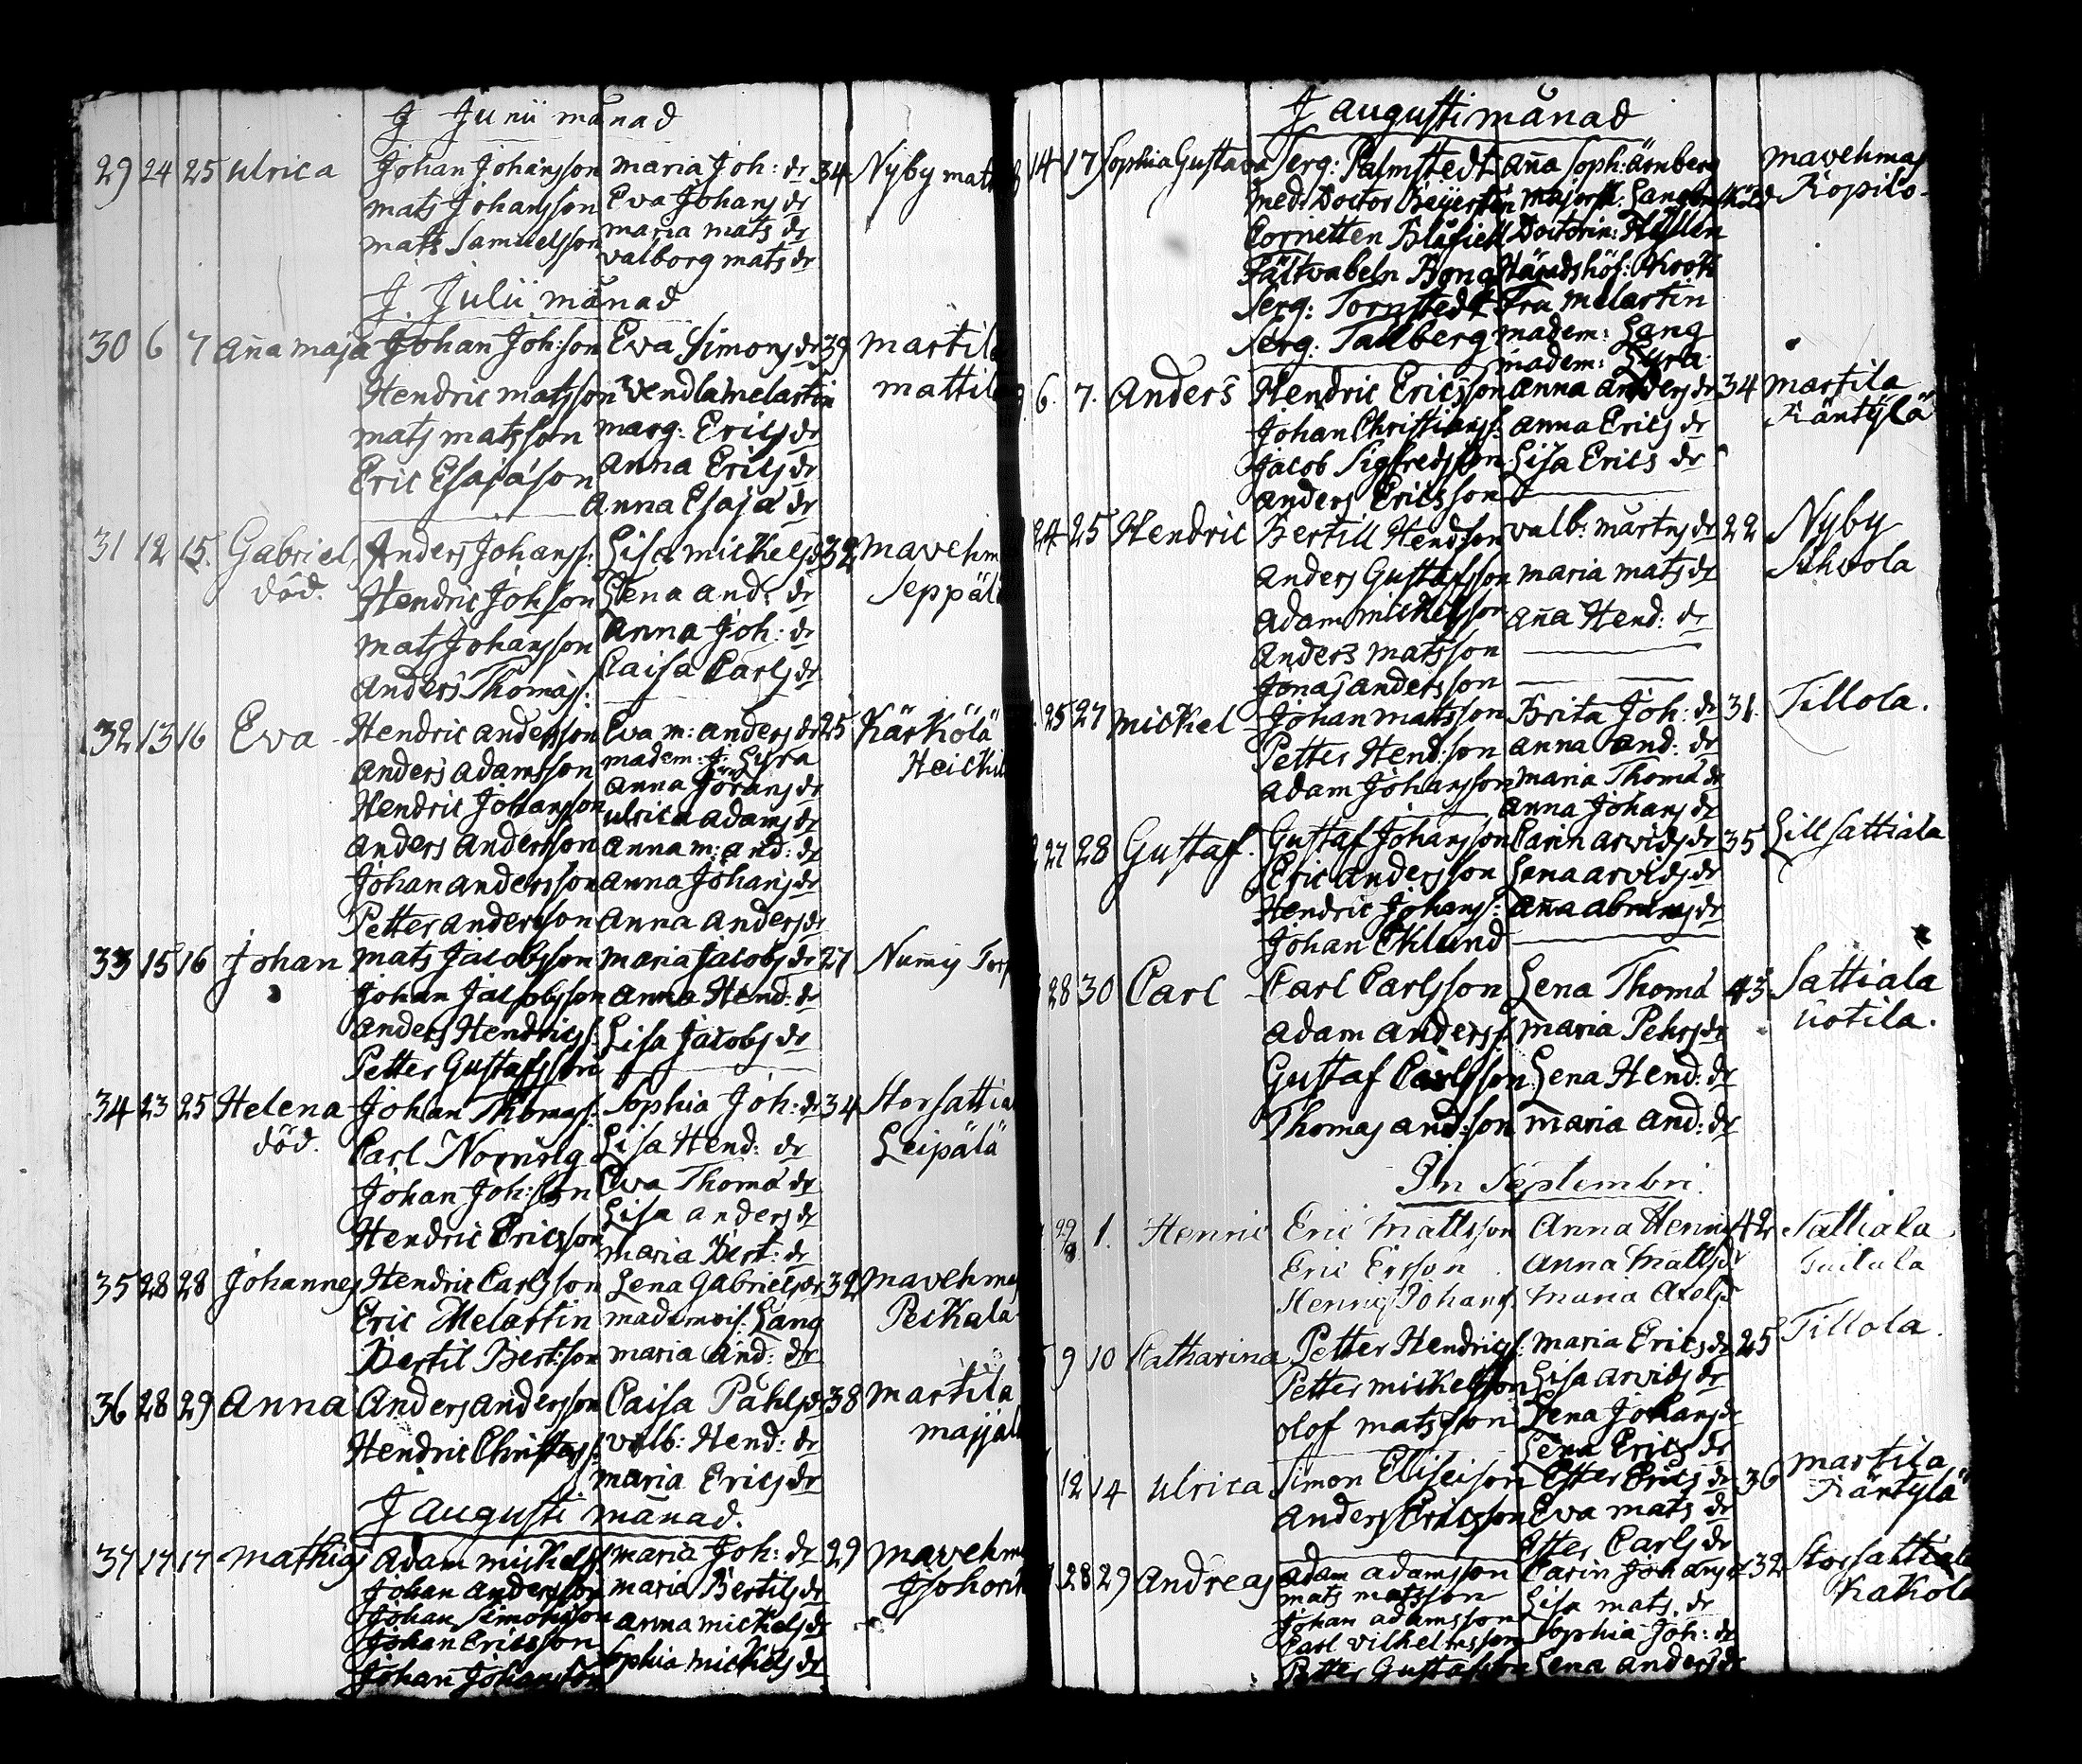 J Junii månad
29 24 25 Ulrica Johan Johansson Maria Joh: dr 34 Nyby
Mats Johansson Eva Johans dr
Mats Samuelsson Maria Mats dr
Valborg Mats dr
J. Julii månad
30 6 7 Aña Maja Johan Joh:son Eva Simons dr 39 Martila
Hendric Matsson Vendla Melartin
Mats Matsson Marg: Erics dr
Eric Esaiáson Anna Erics dr
Anna Esajá dr
31 12 15. Gabriel, Anders Johanss: Lisa Mickels dr 32
död. Hendric Joh:son Lena And: dr
Mats Johansson Anna Joh: dr
Anders Thomass: Caisa Carls dr
32 13 16 Eva Hendric Andersson Eva M: Anders dr 25 Kärkölä
Anders Adamsson Madem: J: Lyra
Hendric Johansson Anna Jörans dr
Ulrica Adams dr
Anders Andersson Anna M: And: dr
Johan Andersson Anna Johans dr
Petter Andersson Anna Anders dr
33 15 16 Johan Mats Jacobsson Maria Jacobs dr 27
Johan Jacobsson Anna Hend: dr
Anders Hendricss: Lisa Jacobs dr
Petter Gustafsson
34 23 25 Helena Johan Thomass: Sophia Joh: dr 34
död. Carl Lisa Hend: dr Leipälä
Johan Joh:son Eva Thomá dr
Lisa Anders dr
Hendric Ericsson Maria Bert: dr
35 28 28 Johannes Hendric Carlsson Lena Gabriels dr 32
Eric Melartin Mademois: Lang Peikala
Bertil Bert:son Maria And: dr
36 28 29 Anna Anders Andersson Caisa Påhls dr 38 Martila
Hendric Christerss: Valb: Hend: dr
Maria Erics dr
J Augusti månad.
37 17 17 Mathias Adam Mickelss: Maria Joh: dr 29
Johan Andersson Maria Bertils dr
Johan Simonsson Anna Mickels dr
Johan Ericsson Sophia Mickels dr
Johan Johansson
J Augusti månad
14 17 Sophia Gustava Serg: Palmstedt Aña Soph: Ärnberg Mavehmas
Med: Doctor Majorsk: Kopilo
Cornetten Blåfield Doctorin:
Fältväbeln Bong Häradshöf:
Serg: Tornstedt Fru Melartin
Serg: Tallberg Madem: Lang
Madem: Lyra
6. 7. Anders Hendric Ericsson Anna Anders dr 34 Martila
Johan Christianss: Anna Erics dr Käntylä
Jacob Sigfredsson Lisa Erics dr
Anders Ericsson
24 25 Hendric Bertill Hendson Valb: Mårtns dr 22 Nyby
Anders Gustafsson Maria Mats dr Sihvola
Adam Mickelsson Aña Hend: dr
Anders Matsson
Jonas Andersson
25 27 Mickel Johan Matsson Brita Joh: dr 31. Tillola.
Petter Hend:son Anna And: dr
Adam Johansson Maria Thomá dr
Anna Johans dr
27 28 Gustaf. Gustaf Johansson Carin Arvids dr 35 Lill Sattiala
Eric Andersson Lena Arvids dr
Hendric Johanss: Aña Abrams dr
Johan Eklund
28 30 Carl Carl Carlsson Lena Thomá 43 Sattiala
Adam Anderss: Maria Pehrs dr Uotila.
Gustaf Carlsson Lena Hend: dr
Thomas And:son Maria And: dr
In Septembri.
29/8 1. Henric Eric Mattsson Anna Henrics 42 Sattiala
Eric Ersson Anna Matts dr
Henric Johans. Maria Axels
9 10 Catharina Petter Hendricss: Maria Erics dr 25 Tillola.
Petter Mickelsson Lisa Arvids dr
Olof Matsson Lena Johans dr
Lena Erics dr
12 14 Ulrica Simon Eliseison Ester Erics dr 36 Martila
Anders Ericsson Eva Mats dr Käntylä
Ester Carls dr
28 29 Andreas Adam Adamsson Carin Johans dr 32 Storsattiala
Mats Matsson Lisa Mats. dr Kakola
Johan Adamsson
Carl Vilhelmsson Sophia Joh: dr
Petter Gustafsson Lena Anders dr